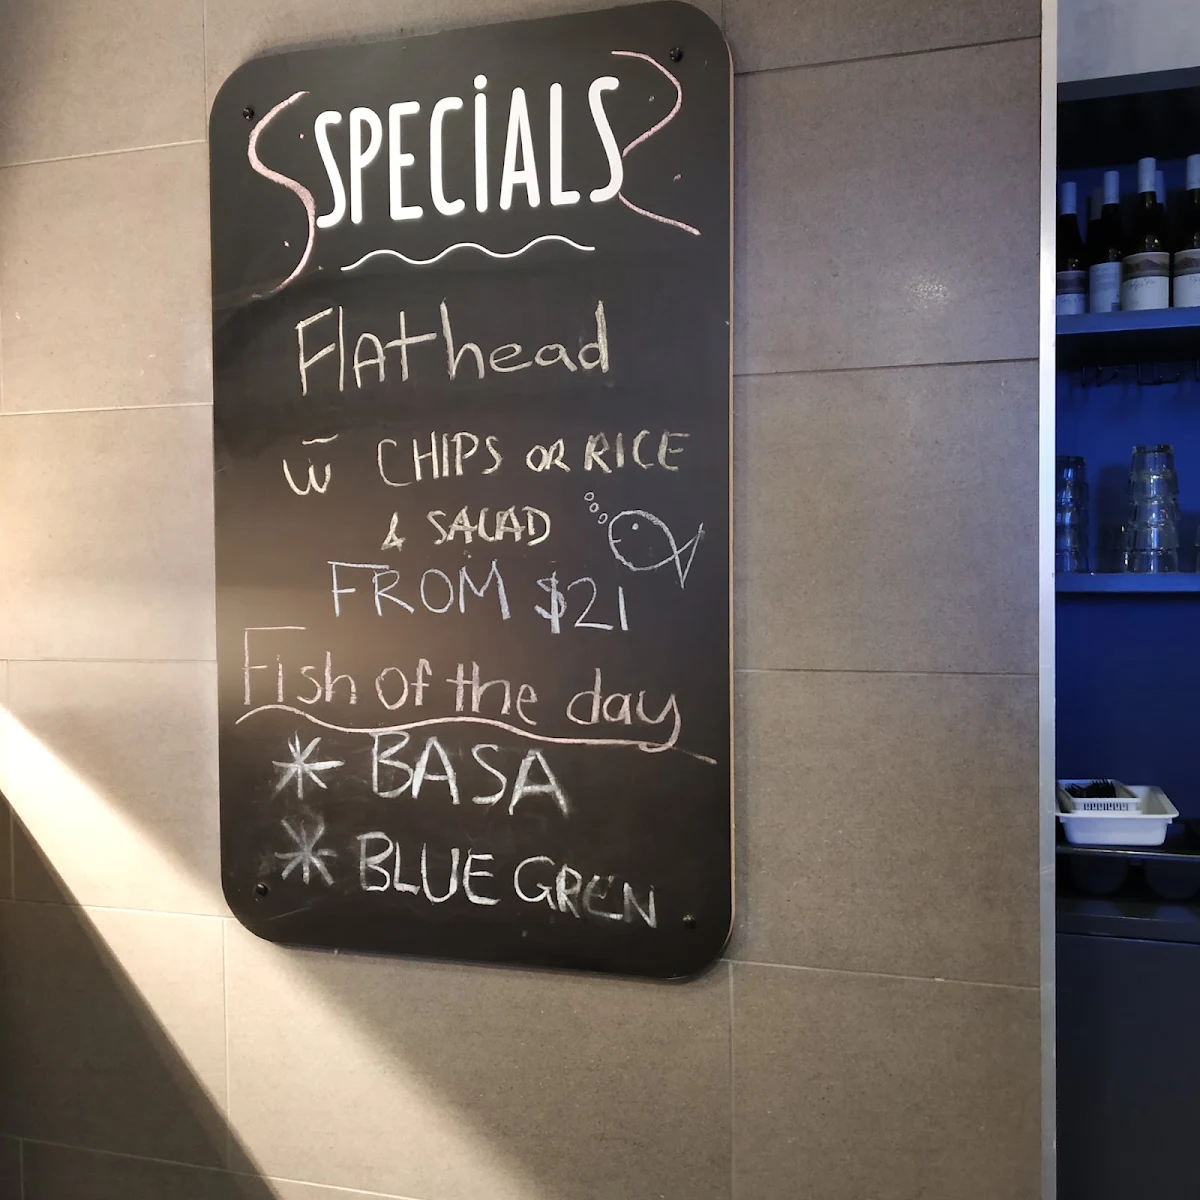 SPECiALS
FlAthead
w̄ CHIPS OR RICE
& SALAD
FROM $21
Fish of the day
* BASA
* BLUE GREN